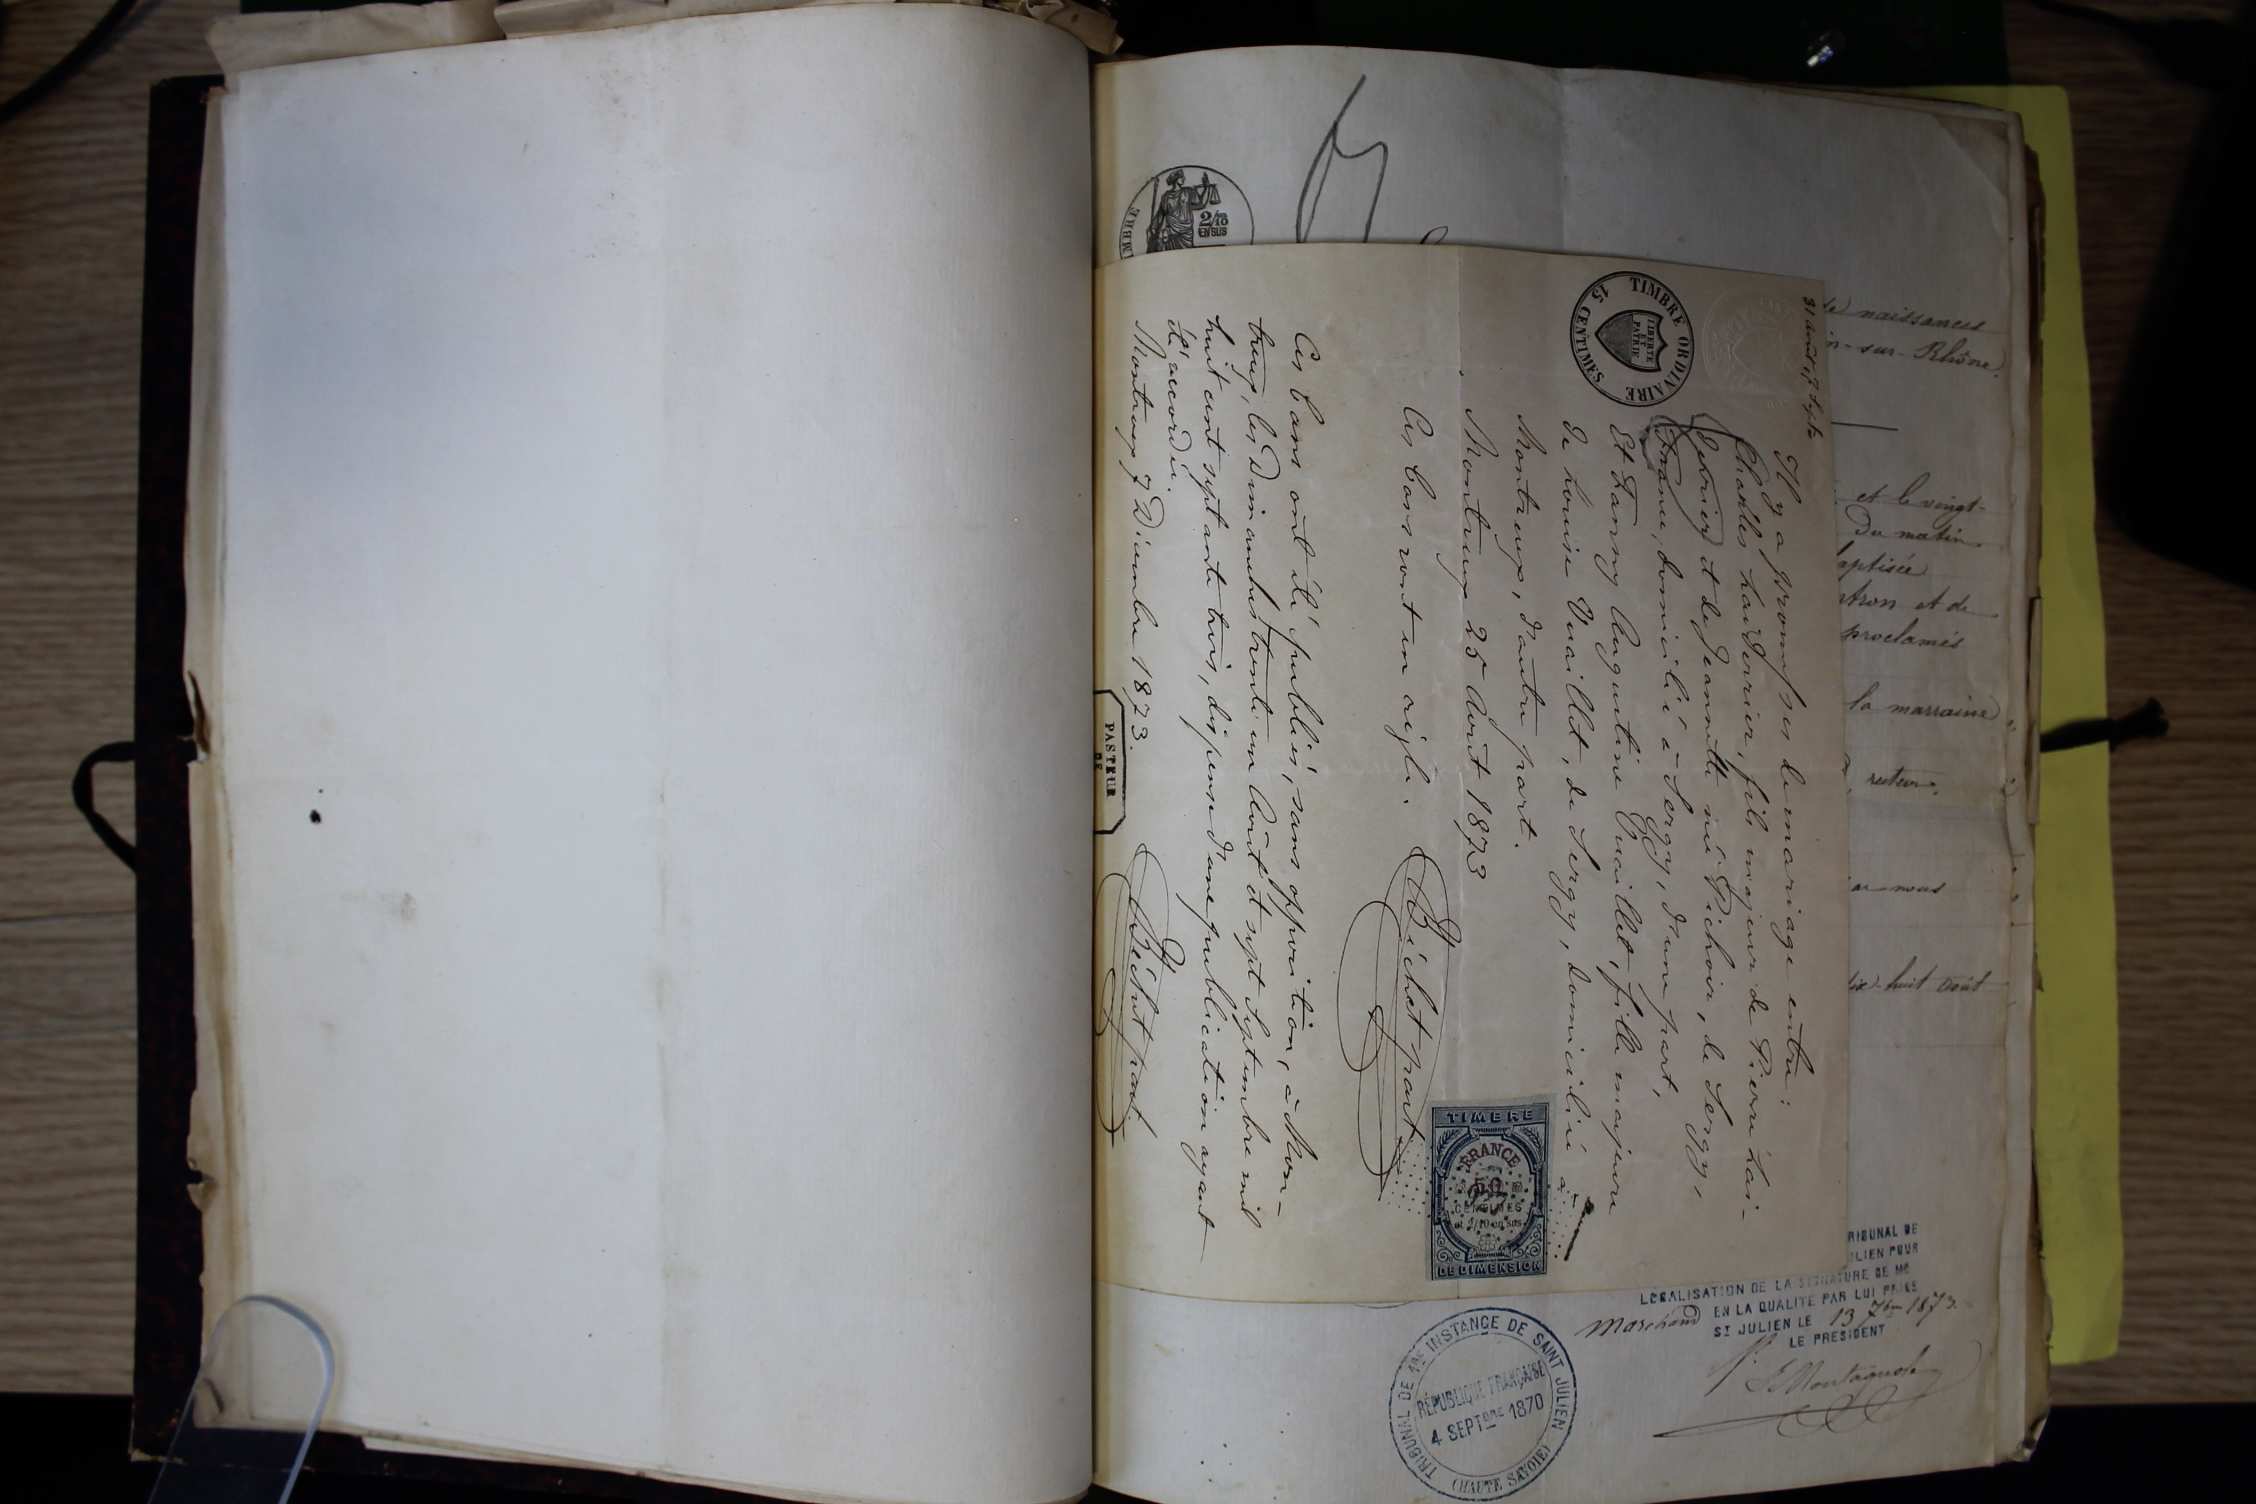 31 août & 7 Septe
Il y a promesses de mariage entre:
Charles Laverrier, fils majeur de Pierre La-
verrier et de Jeannette née Pichoir, de Sergy,
France, domicilié à Sergy, d'une part,
Et Fanny Augustine Vuaillet, fille majeure
de Louise Vuaillet, de Sergy, domiciliée à
Montreux, d'autre part.
Montreux 25 Août 1873
Béchet past.
Ces bans vont en règle.
Ces bans ont été publiés, sans opposition, à Mon-
treux, les Dimanches trente un Août et sept Septembre mil
huit cent septante trois, dispense d'une publication ayant
été accordée.
Montreux, 7 Décembre 1873.
Béchet past.
PASTEUR
DE
TIMBRE ORDINAIRE
15 CENTIMES
LIBERTÉ
ET
PATRIE
TIMBRE
FRANCE
50
CENTIMES
et 2/10 en sus
DE DIMENSION
TIMBRE
2/10
EN SUS
de naissances
-sur-Rhône.
et le vingt-
du matin
baptisée
et de
proclamés
la marraine
recteur.
par nous
dix-huit août
TRIBUNAL DE
JULIEN POUR
LÉGALISATION DE LA SIGNATURE DE MR
Marchand EN LA QUALITÉ PAR LUI PRISE
ST JULIEN LE 13 7bre 1873.
LE PRÉSIDENT
TRIBUNAL DE 1ÈRE INSTANCE DE SAINT JULIEN
RÉPUBLIQUE FRANÇAISE
4 SEPTBRE 1870
(HAUTE SAVOIE)